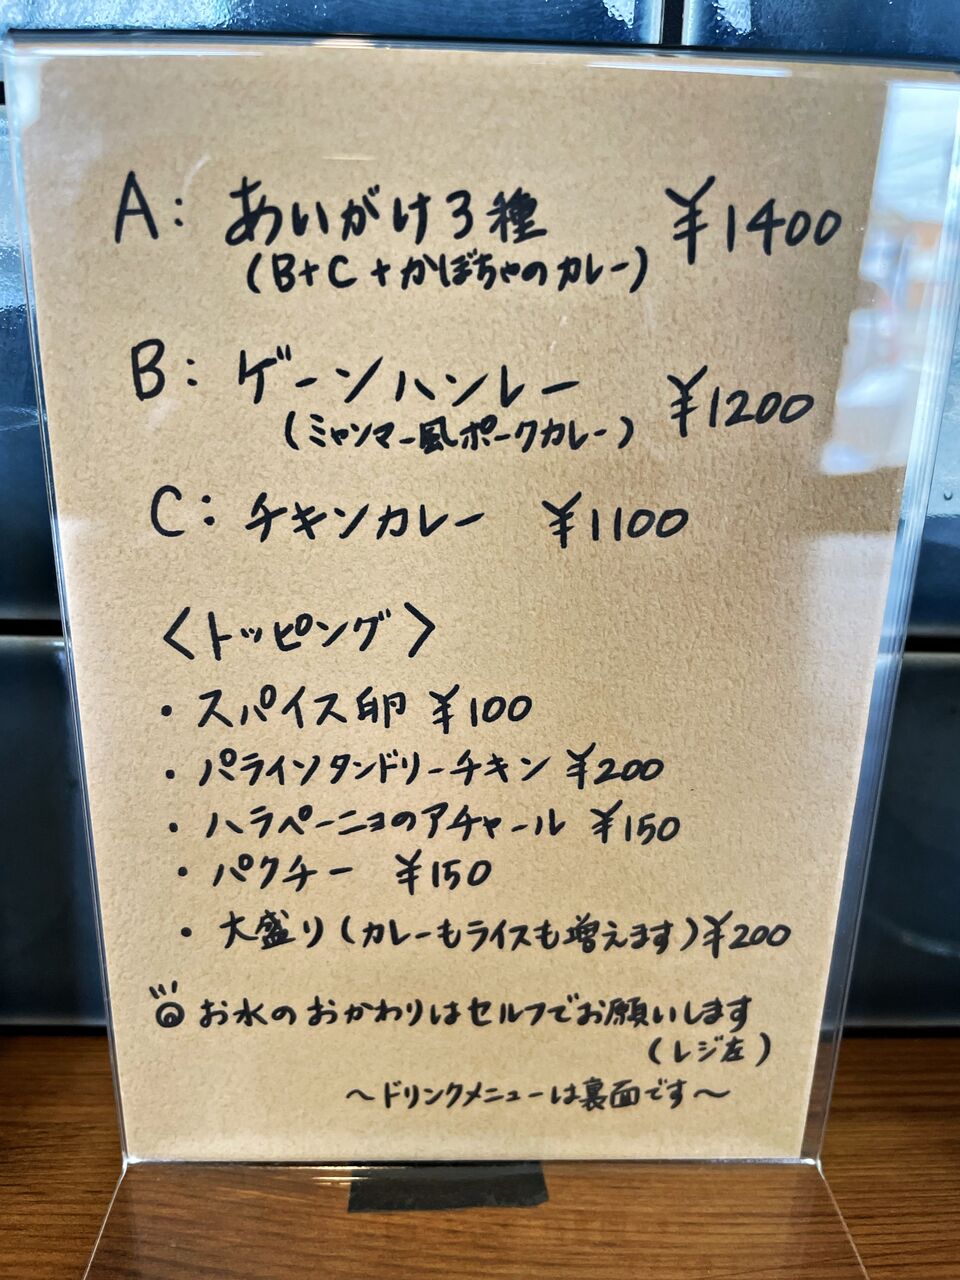 A: あいがけ3種 ¥1400
(B+C+かぼちゃのカレー)
B: ゲーンハンレー ¥1200
(ミャンマー風ポークカレー)
C: チキンカレー ¥1100
〈トッピング〉
・スパイス卵 ¥100
・パライソタンドリーチキン ¥200
・ハラペーニョのアチャール ¥150
・パクチー ¥150
・大盛り(カレーもライスも増えます)¥200
お水のおかわりはセルフでお願いします
(レジ左)
〜ドリンクメニューは裏面です〜